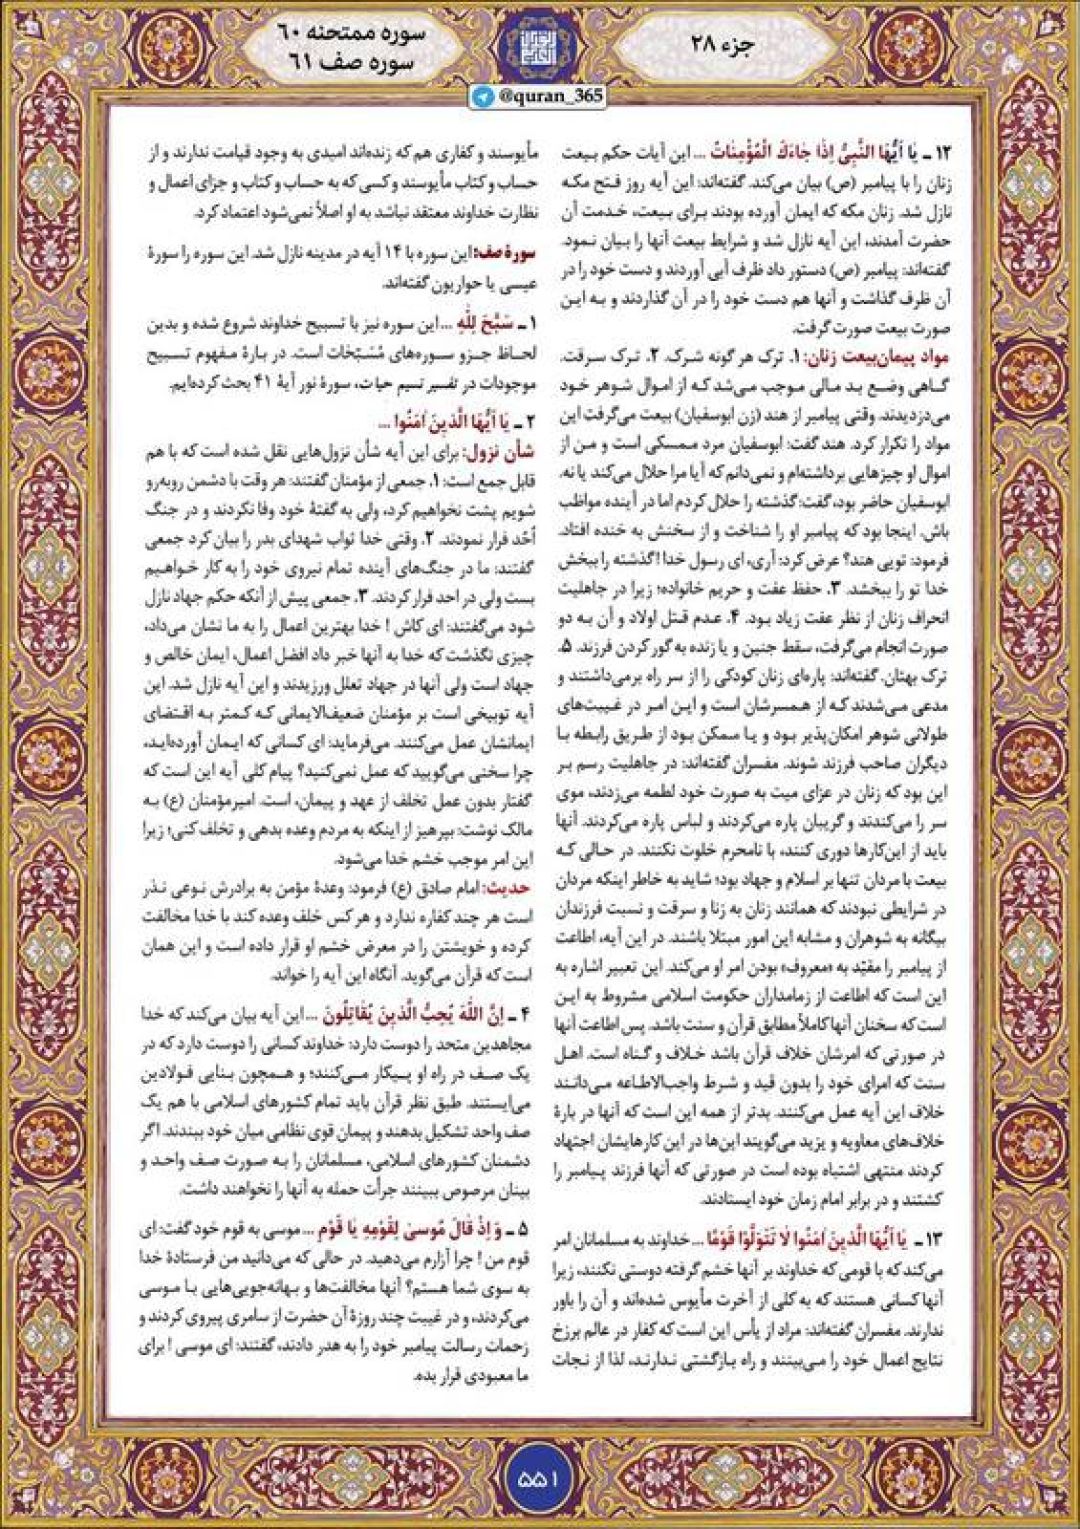 جزء ۲۸
سوره ممتحنه ۶۰
سوره صف ۶۱
@quran_365
۱۲ ـ يَا أَيُّهَا النَّبِيُّ إِذَا جَاءَكَ الْمُؤْمِنَاتُ ... این آیات حکم بیعت
زنان را با پیامبر (ص) بیان می‌کند. گفته‌اند: این آیه روز فتح مکه
نازل شد. زنان مکه که ایمان آورده بودند برای بیعت، خدمت آن
حضرت آمدند، این آیه نازل شد و شرایط بیعت آنها را بیان نمود.
گفته‌اند: پیامبر (ص) دستور داد ظرف آبی آوردند و دست خود را در
آن ظرف گذاشت و آنها هم دست خود را در آن گذاردند و به این
صورت بیعت صورت گرفت.
مواد پیمان‌بیعت زنان: ۱. ترک هر گونه شرک. ۲. ترک سرقت.
گاهی وضع بد مالی موجب می‌شد که از اموال شوهر خود
می‌دزدیدند. وقتی پیامبر از هند (زن ابوسفیان) بیعت می‌گرفت این
مواد را تکرار کرد. هند گفت: ابوسفیان مرد ممسکی است و من از
اموال او چیزهایی برداشته‌ام و نمی‌دانم که آیا مرا حلال می‌کند یا نه.
ابوسفیان حاضر بود، گفت: گذشته را حلال کردم اما در آینده مواظب
باش. اینجا بود که پیامبر او را شناخت و از سخنش به خنده افتاد.
فرمود: تویی هند؟ عرض کرد: آری، ای رسول خدا! گذشته را ببخش
خدا تو را ببخشد. ۳. حفظ عفت و حریم خانواده؛ زیرا در جاهلیت
انحراف زنان از نظر عفت زیاد بود. ۴. عدم قتل اولاد و آن به دو
صورت انجام می‌گرفت، سقط جنین و یا زنده به گور کردن فرزند. ۵.
ترک بهتان. گفته‌اند: پاره‌ای زنان کودکی را از سر راه برمی‌داشتند و
مدعی می‌شدند که از همسرشان است و این امر در غیبت‌های
طولانی شوهر امکان‌پذیر بود و یا ممکن بود از طریق رابطه با
دیگران صاحب فرزند شوند. مفسران گفته‌اند: در جاهلیت رسم بر
این بود که زنان در عزای میت به صورت خود لطمه می‌زدند، موی
سر را می‌کندند و گریبان پاره می‌کردند و لباس پاره می‌کردند. آنها
باید از این‌کارها دوری کنند، با نامحرم خلوت نکنند. در حالی که
بیعت با مردان تنها بر اسلام و جهاد بود؛ شاید به خاطر اینکه مردان
در شرایطی نبودند که همانند زنان به زنا و سرقت و نسبت فرزندان
بیگانه به شوهران و مشابه این امور مبتلا باشند. در این آیه، اطاعت
از پیامبر را مقیّد به «معروف» بودن امر او می‌کند. این تعبیر اشاره به
این است که اطاعت از زمامداران حکومت اسلامی مشروط به این
است که سخنان آنها کاملاً مطابق قرآن و سنت باشد. پس اطاعت آنها
در صورتی که امرشان خلاف قرآن باشد خلاف و گناه است. اهل
سنت که امرای خود را بدون قید و شرط واجب‌الاطاعه می‌دانند
خلاف این آیه عمل می‌کنند. بدتر از همه این است که آنها در بارهٔ
خلاف‌های معاویه و یزید می‌گویند این‌ها در این کارهایشان اجتهاد
کردند منتهی اشتباه بوده است در صورتی که آنها فرزند پیامبر را
کشتند و در برابر امام زمان خود ایستادند.
۱۳ ـ يَا أَيُّهَا الَّذِينَ آمَنُوا لَا تَتَوَلَّوْا قَوْمًا ... خداوند به مسلمانان امر
می‌کند که با قومی که خداوند بر آنها خشم گرفته دوستی نکنند، زیرا
آنها کسانی هستند که به کلی از آخرت مأیوس شده‌اند و آن را باور
ندارند. مفسران گفته‌اند: مراد از یأس این است که کفار در عالم برزخ
نتایج اعمال خود را می‌بینند و راه بازگشتی ندارند، لذا از نجات
مأیوسند و کفاری هم که زنده‌اند امیدی به وجود قیامت ندارند و از
حساب و کتاب مأیوسند و کسی که به حساب و کتاب و جزای اعمال و
نظارت خداوند معتقد نباشد به او اصلاً نمی‌شود اعتماد کرد.
سورهٔ صف: این سوره با ۱۴ آیه در مدینه نازل شد. این سوره را سورهٔ
عیسی یا حواریون گفته‌اند.
۱ ـ سَبَّحَ لِلَّهِ ... این سوره نیز با تسبیح خداوند شروع شده و بدین
لحاظ جزو سوره‌های مُسَبّحات است. در بارهٔ مفهوم تسبیح
موجودات در تفسیر نسیم حیات، سورهٔ نور آیهٔ ۴۱ بحث کرده‌ایم.
۲ ـ يَا أَيُّهَا الَّذِينَ آمَنُوا ...
شأن نزول: برای این آیه شأن نزول‌هایی نقل شده است که با هم
قابل جمع است: ۱. جمعی از مؤمنان گفتند: هر وقت با دشمن روبه‌رو
شویم پشت نخواهیم کرد، ولی به گفتهٔ خود وفا نکردند و در جنگ
اُحُد فرار نمودند. ۲. وقتی خدا ثواب شهدای بدر را بیان کرد جمعی
گفتند: ما در جنگ‌های آینده تمام نیروی خود را به کار خواهیم
بست ولی در احد فرار کردند. ۳. جمعی پیش از آنکه حکم جهاد نازل
شود می‌گفتند: ای کاش! خدا بهترین اعمال را به ما نشان می‌داد،
چیزی نگذشت که خدا به آنها خبر داد افضل اعمال، ایمان خالص و
جهاد است ولی آنها در جهاد تعلل ورزیدند و این آیه نازل شد. این
آیه توبیخی است بر مؤمنان ضعیف‌الایمانی که کمتر به اقتضای
ایمانشان عمل می‌کنند. می‌فرماید: ای کسانی که ایمان آورده‌اید،
چرا سخنی می‌گویید که عمل نمی‌کنید؟ پیام کلی آیه این است که
گفتار بدون عمل تخلف از عهد و پیمان، است. امیرمؤمنان (ع) به
مالک نوشت: بپرهیز از اینکه به مردم وعده بدهی و تخلف کنی؛ زیرا
این امر موجب خشم خدا می‌شود.
حدیث: امام صادق (ع) فرمود: وعدهٔ مؤمن به برادرش نوعی نذر
است هر چند کفاره ندارد و هر کس خلف وعده کند با خدا مخالفت
کرده و خویشتن را در معرض خشم او قرار داده است و این همان
است که قرآن می‌گوید. آنگاه این آیه را خواند.
۴ ـ إِنَّ اللَّهَ يُحِبُّ الَّذِينَ يُقَاتِلُونَ ... این آیه بیان می‌کند که خدا
مجاهدین متحد را دوست دارد: خداوند کسانی را دوست دارد که در
یک صف در راه او پیکار می‌کنند؛ و همچون بنایی فولادین
می‌ایستند. طبق نظر قرآن باید تمام کشورهای اسلامی با هم یک
صف واحد تشکیل بدهند و پیمان قوی نظامی میان خود ببندند. اگر
دشمنان کشورهای اسلامی، مسلمانان را به صورت صف واحد و
بنیان مرصوص ببینند جرأت حمله به آنها را نخواهند داشت.
۵ ـ وَ إِذْ قَالَ مُوسَىٰ لِقَوْمِهِ يَا قَوْمِ ... موسی به قوم خود گفت: ای
قوم من! چرا آزارم می‌دهید. در حالی که می‌دانید من فرستادهٔ خدا
به سوی شما هستم؟ آنها مخالفت‌ها و بهانه‌جویی‌هایی با موسی
می‌کردند، و در غیبت چند روزهٔ آن حضرت از سامری پیروی کردند و
زحمات رسالت پیامبر خود را به هدر دادند، گفتند: ای موسی! برای
ما معبودی قرار بده.
۵۵۱